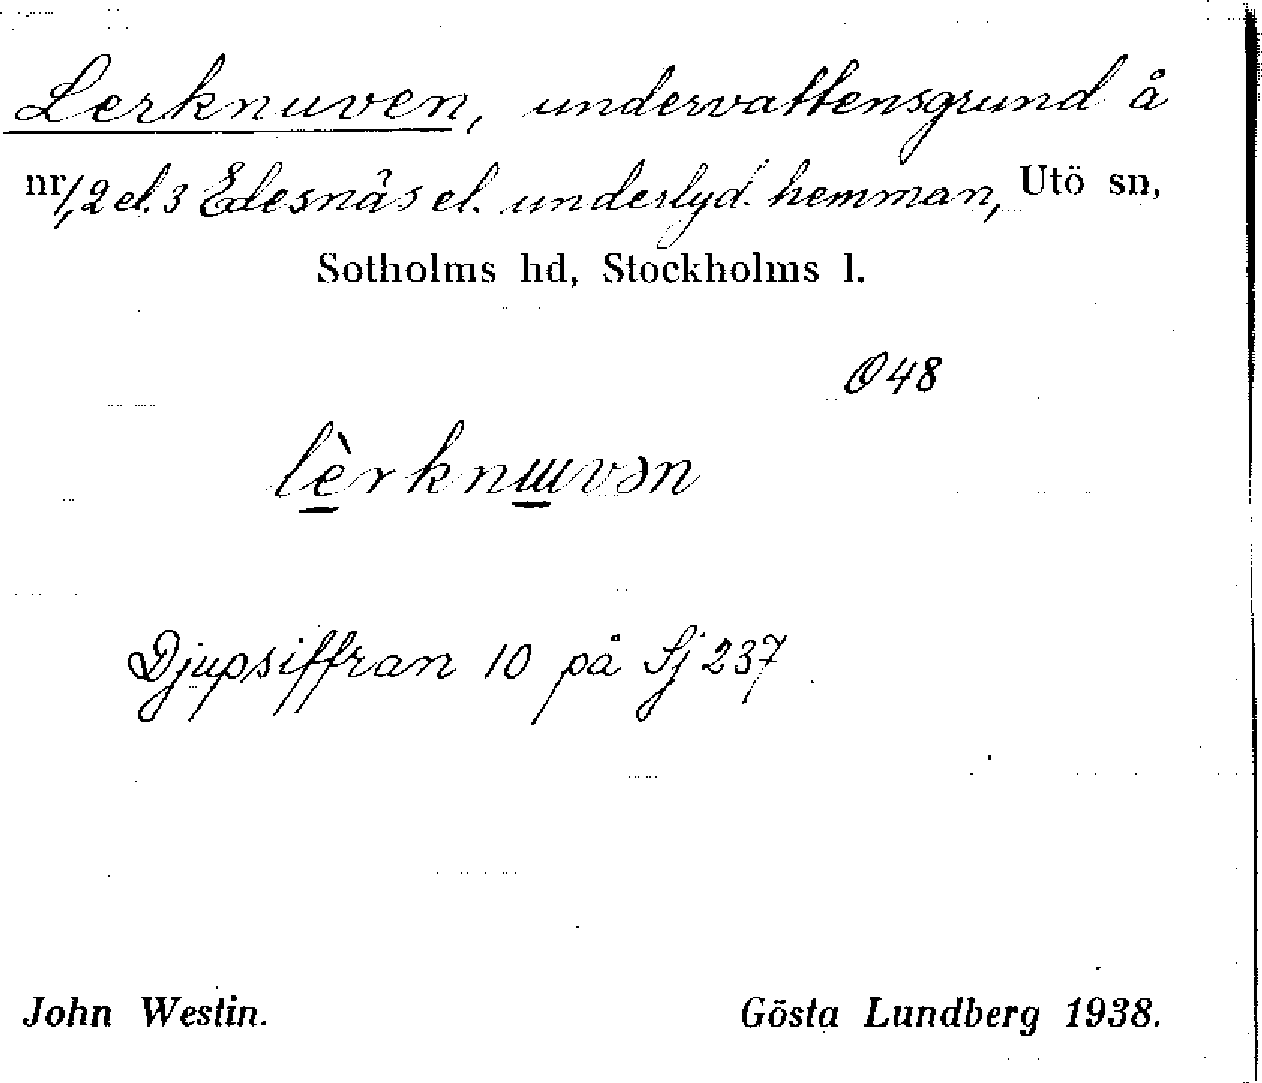 Lerknuven, undervattensgrund å
nr 1, 2 el. 3 Edesnäs el. underlyd. hemman, Utö sn,
Sotholms hd, Stockholms l.
O 48
lèrknɯvən
Djupsiffran 10 på Sj 237
John Westin. Gösta Lundberg 1938.